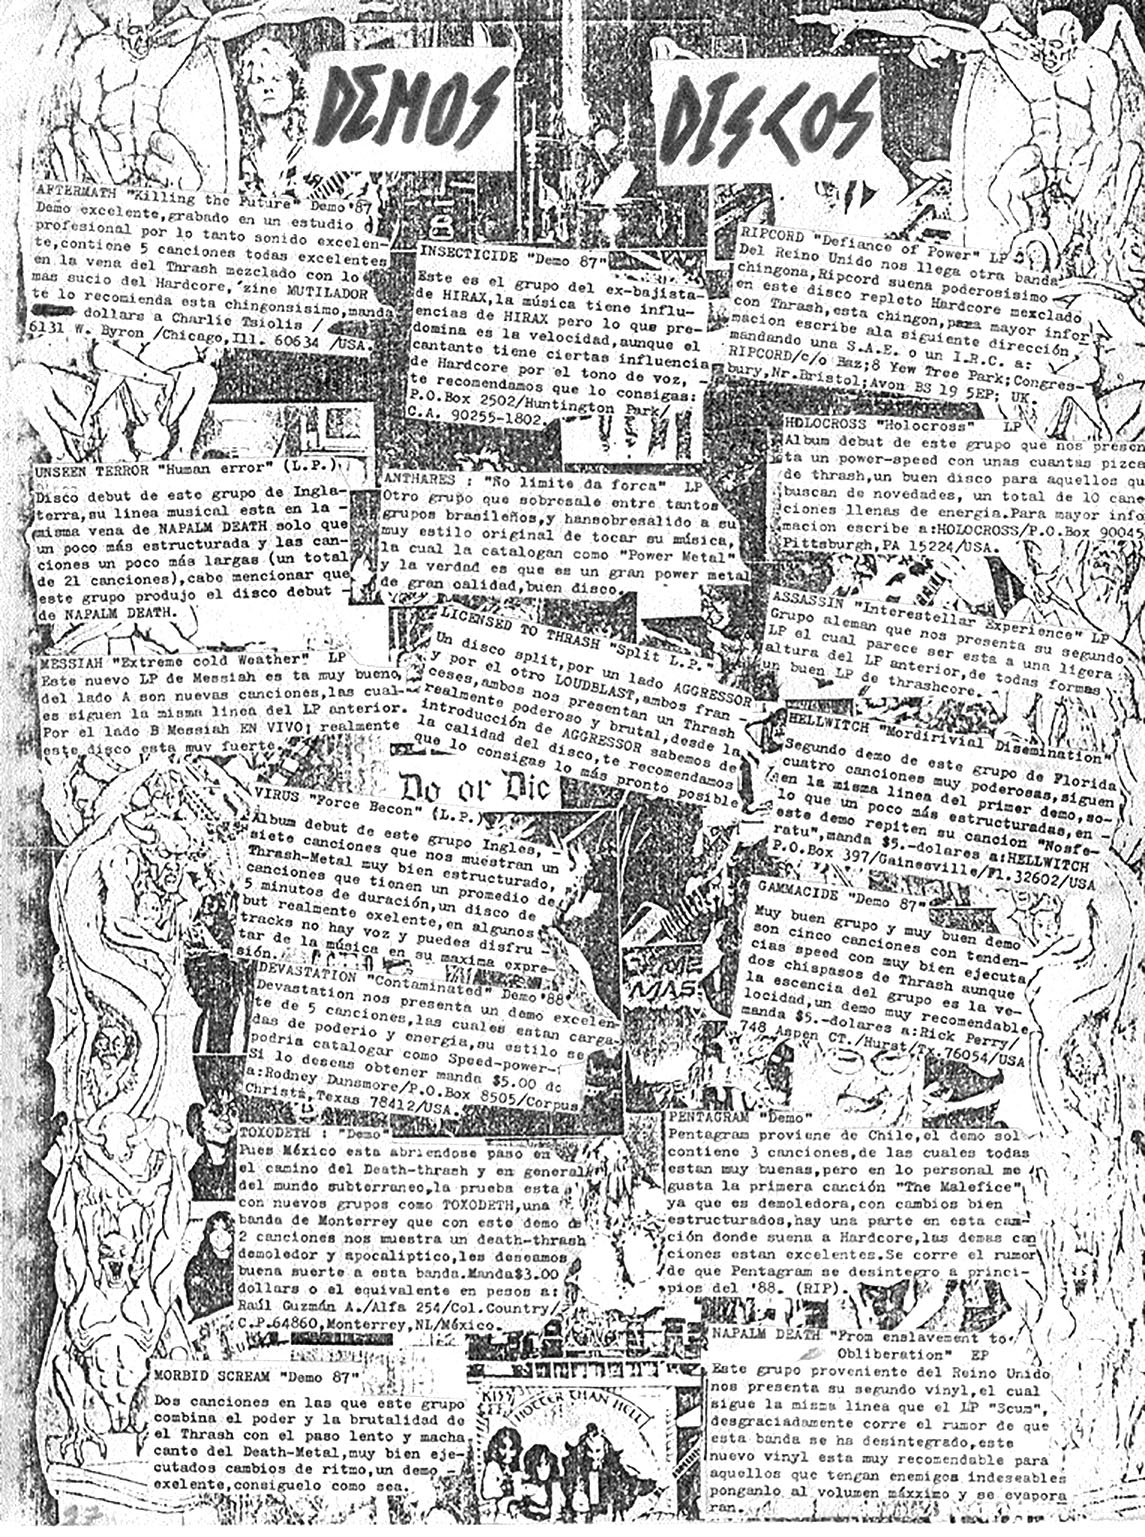 DEMOS
DISCOS
AFTERMATH "Killing the Future" Demo'87
Demo excelente,grabado en un estudio
profesional por lo tanto sonido excelen-
te,contiene 5 canciones todas excelentes
en la vena del Thrash mezclado con lo
mas sucio del Hardcore,'zine MUTILADOR
te lo recomienda esta chingonsisimo,manda
dollars a Charlie Tsiolis /
6131 W. Byron /Chicago,Ill. 60634 /USA.
UNSEEN TERROR "Human error" (L.P.)
Disco debut de este grupo de Ingla-
terra,su linea musical esta en la -
misma vena de NAPALM DEATH solo que
un poco más estructurada y las can-
ciones un poco más largas (un total
de 21 canciones),cabe mencionar que
este grupo produjo el disco debut -
de NAPALM DEATH.
MESSIAH "Extreme cold Weather" LP
Este nuevo LP de Messiah es ta muy bueno,
del lado A son nuevas canciones,las cual-
es siguen la misma linea del LP anterior.
Por el lado B Messiah EN VIVO; realmente
este disco esta muy fuerte.
INSECTICIDE "Demo 87"
Este es el grupo del ex-bajista-
de HIRAX,la música tiene influ-
encias de HIRAX pero lo que pre-
domina es la velocidad,aunque el
cantante tiene ciertas influencia
de Hardcore por el tono de voz, -
te recomendamos que lo consigas:
P.O.Box 2502/Huntington Park/
C.A. 90255-1802.
ANTHARES : "No limite da forca" LP
Otro grupo que sobresale entre tantos
grupos brasileños,y hansobresálido a su
muy estilo original de tocar su música,
la cual la catalogan como "Power Metal"
y la verdad es que es un gran power metal
de gran calidad,buen disco.
LICENSED TO THRASH "Split L.P."
Un disco split,por un lado AGGRESSOR
y por el otro LOUDBLAST,ambos fran -
ceses,ambos nos presentan un Thrash
realmente poderoso y brutal,desde la
introducción de AGGRESSOR sabemos de
la calidad del disco,te recomendamos
que lo consigas lo más pronto posible
Do or Die
VIRUS "Force Recon" (L.P.)
Album debut de este grupo Ingles, -
siete canciones que nos muestran un
Thrash-Metal muy bien estructurado,
canciones que tienen un promedio de
5 minutos de duración,un disco de
but realmente exelente,en algunos
tracks no hay voz y puedes disfru -
tar de la música en su maxima expre-
sión.
DEVASTATION "Contaminated" Demo'88
Devastation nos presenta un demo excelen-
te de 5 canciones,las cuales estan carga-
das de poderio y energia,su estilo se
podria catalogar como Speed-power-
Si lo deseas obtener manda $5.00 do
a:Rodney Dunsmore/P.O.Box 8505/Corpus
Christi,Texas 78412/USA.
TOXODETH : "Demo"
Pues México esta abriendose paso en
el camino del Death-thrash y en general
del mundo subterraneo,la prueba esta
con nuevos grupos como TOXODETH,una
banda de Monterrey que con este demo de
2 canciones nos muestra un death-thrash
demoledor y apocaliptico,les deseamos
buena suerte a esta banda.Manda$3.00
dollars o el equivalente en pesos a:
Raúl Guzmán A./Alfa 254/Col.Country/
C.P.64860,Monterrey,NL/México.
MORBID SCREAM "Demo 87"
Dos canciones en las que este grupo
combina el poder y la brutalidad de
el Thrash con el paso lento y macha
cante del Death-Metal,muy bien eje-
cutados cambios de ritmo,un demo -
exelente,consiguelo como sea.
KISS
HOTTER THAN HELL
RIPCORD "Defiance of Power" LP
Del Reino Unido nos llega otra banda
chingona,Ripcord suena poderosisimo
en este disco repleto Hardcore mexclado
con Thrash,esta chingon,para mayor infor
macion escribe ala siguiente dirección,
mandando una S.A.E. o un I.R.C. a:
RIPCORD/c/o Baz;8 Yew Tree Park;Congres-
bury,Nr.Bristol;Avon BS 19 5EP; UK.
HOLOCROSS "Holocross" LP
Album debut de este grupo que nos presen
ta un power-speed con unas cuantas pizca
de thrash,un buen disco para aquellos qu
buscan de novedades, un total de 10 canc
ciones llenas de energia.Para mayor info
macion escribe a:HOLOCROSS/P.O.Box 90045
Pittsburgh,PA 15224/USA.
ASSASSIN "Interestellar Experience" LP
Grupo aleman que nos presenta su segundo
LP el cual parece ser esta a una ligera
altura del LP anterior,de todas formas
un buen LP de thrashcore.
HELLWITCH "Mordirivial Disemination"
Segundo demo de este grupo de Florida
cuatro canciones muy poderosas,siguen
en la misma linea del primer demo,so-
lo que un poco más estructuradas,en -
este demo repiten su cancion "Nosfe-
ratu",manda $5.-dolares a:HELLWITCH
P.O.Box 397/Gainesville/Fl.32602/USA
GAMMACIDE "Demo 87"
Muy buen grupo y muy buen demo
son cinco canciones con tenden-
cias speed con muy bien ejecuta
dos chispasos de Thrash aunque
la escencia del grupo es la ve-
locidad,un demo muy recomendable
manda $5.-dolares a:Rick Perry/
748 Aspen CT./Hurst/Tx.76054/USA
PENTAGRAM "Demo"
Pentagram proviene de Chile,el demo sol
contiene 3 canciones,de las cuales todas
estan muy buenas,pero en lo personal me
gusta la primera canción "The Malefice",
ya que es demoledora,con cambios bien
estructurados,hay una parte en esta can-
ción donde suena a Hardcore,las demas can
ciones estan excelentes.Se corre el rumor
de que Pentagram se desintegro a princi-
pios del '88. (RIP).
NAPALM DEATH "From enslavement to
Obliberation" EP
Este grupo proveniente del Reino Unido
nos presenta su segundo vinyl,el cual
sigue la misma linea que el LP "Scum",
desgraciadamente corre el rumor de que
esta banda se ha desintegrado,este
nuevo vinyl esta muy recomendable para
aquellos que tengan enemigos indeseables
ponganlo al volumen máxximo y se evapora
ran.
27